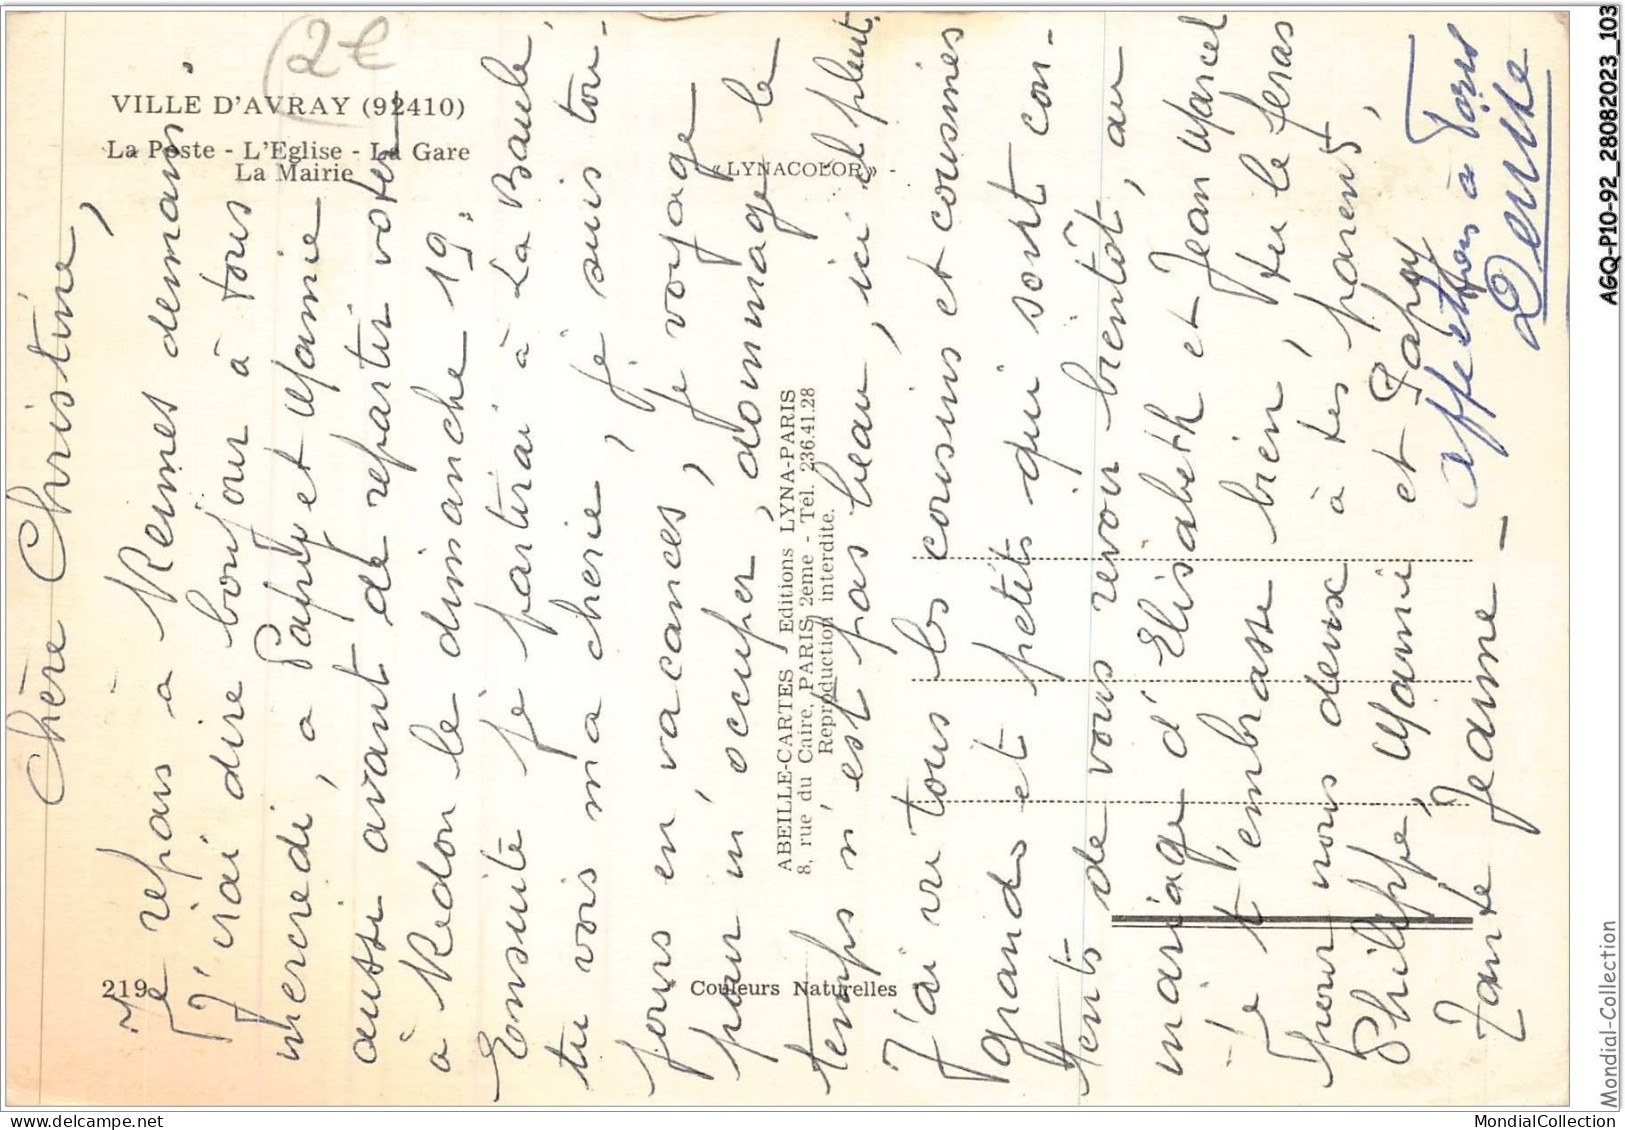 (2€
VILLE D'AVRAY (92410)
La Poste - L'Eglise - La Gare
La Mairie
«LYNACOLOR»
ABEILLE-CARTES Editions LYNA-PARIS
8, rue du Caire, PARIS 2eme - Tél. 236.41.28
Reproduction interdite.
219
Couleurs Naturelles
Chère Christine,
Je repars à Rennes demain.
J'irai dire bonjour à tous
mercredi, à Papy et Mamie
aussi avant de repartir voter
à Redon le dimanche 19.
Ensuite je partirai à La Baule,
tu vois ma chérie, je suis tou-
jours en vacances, je voyage
pour m'occuper, dommage le
temps n'est pas beau, ici il pleut.
J'ai vu tous les cousins et cousines
grands et petits qui sont con-
tents de vous revoir bientôt, au
mariage d'Elisabeth et Jean Marcel
Je t'embrasse bien, tu le feras
pour nous deux à tes parents,
Philippe, Mamie et Papy
Tante Jeanne -
affections à Tous
Denise
AGQ-P10-92_28082023_103
Mondial-Collection
MondialCollection